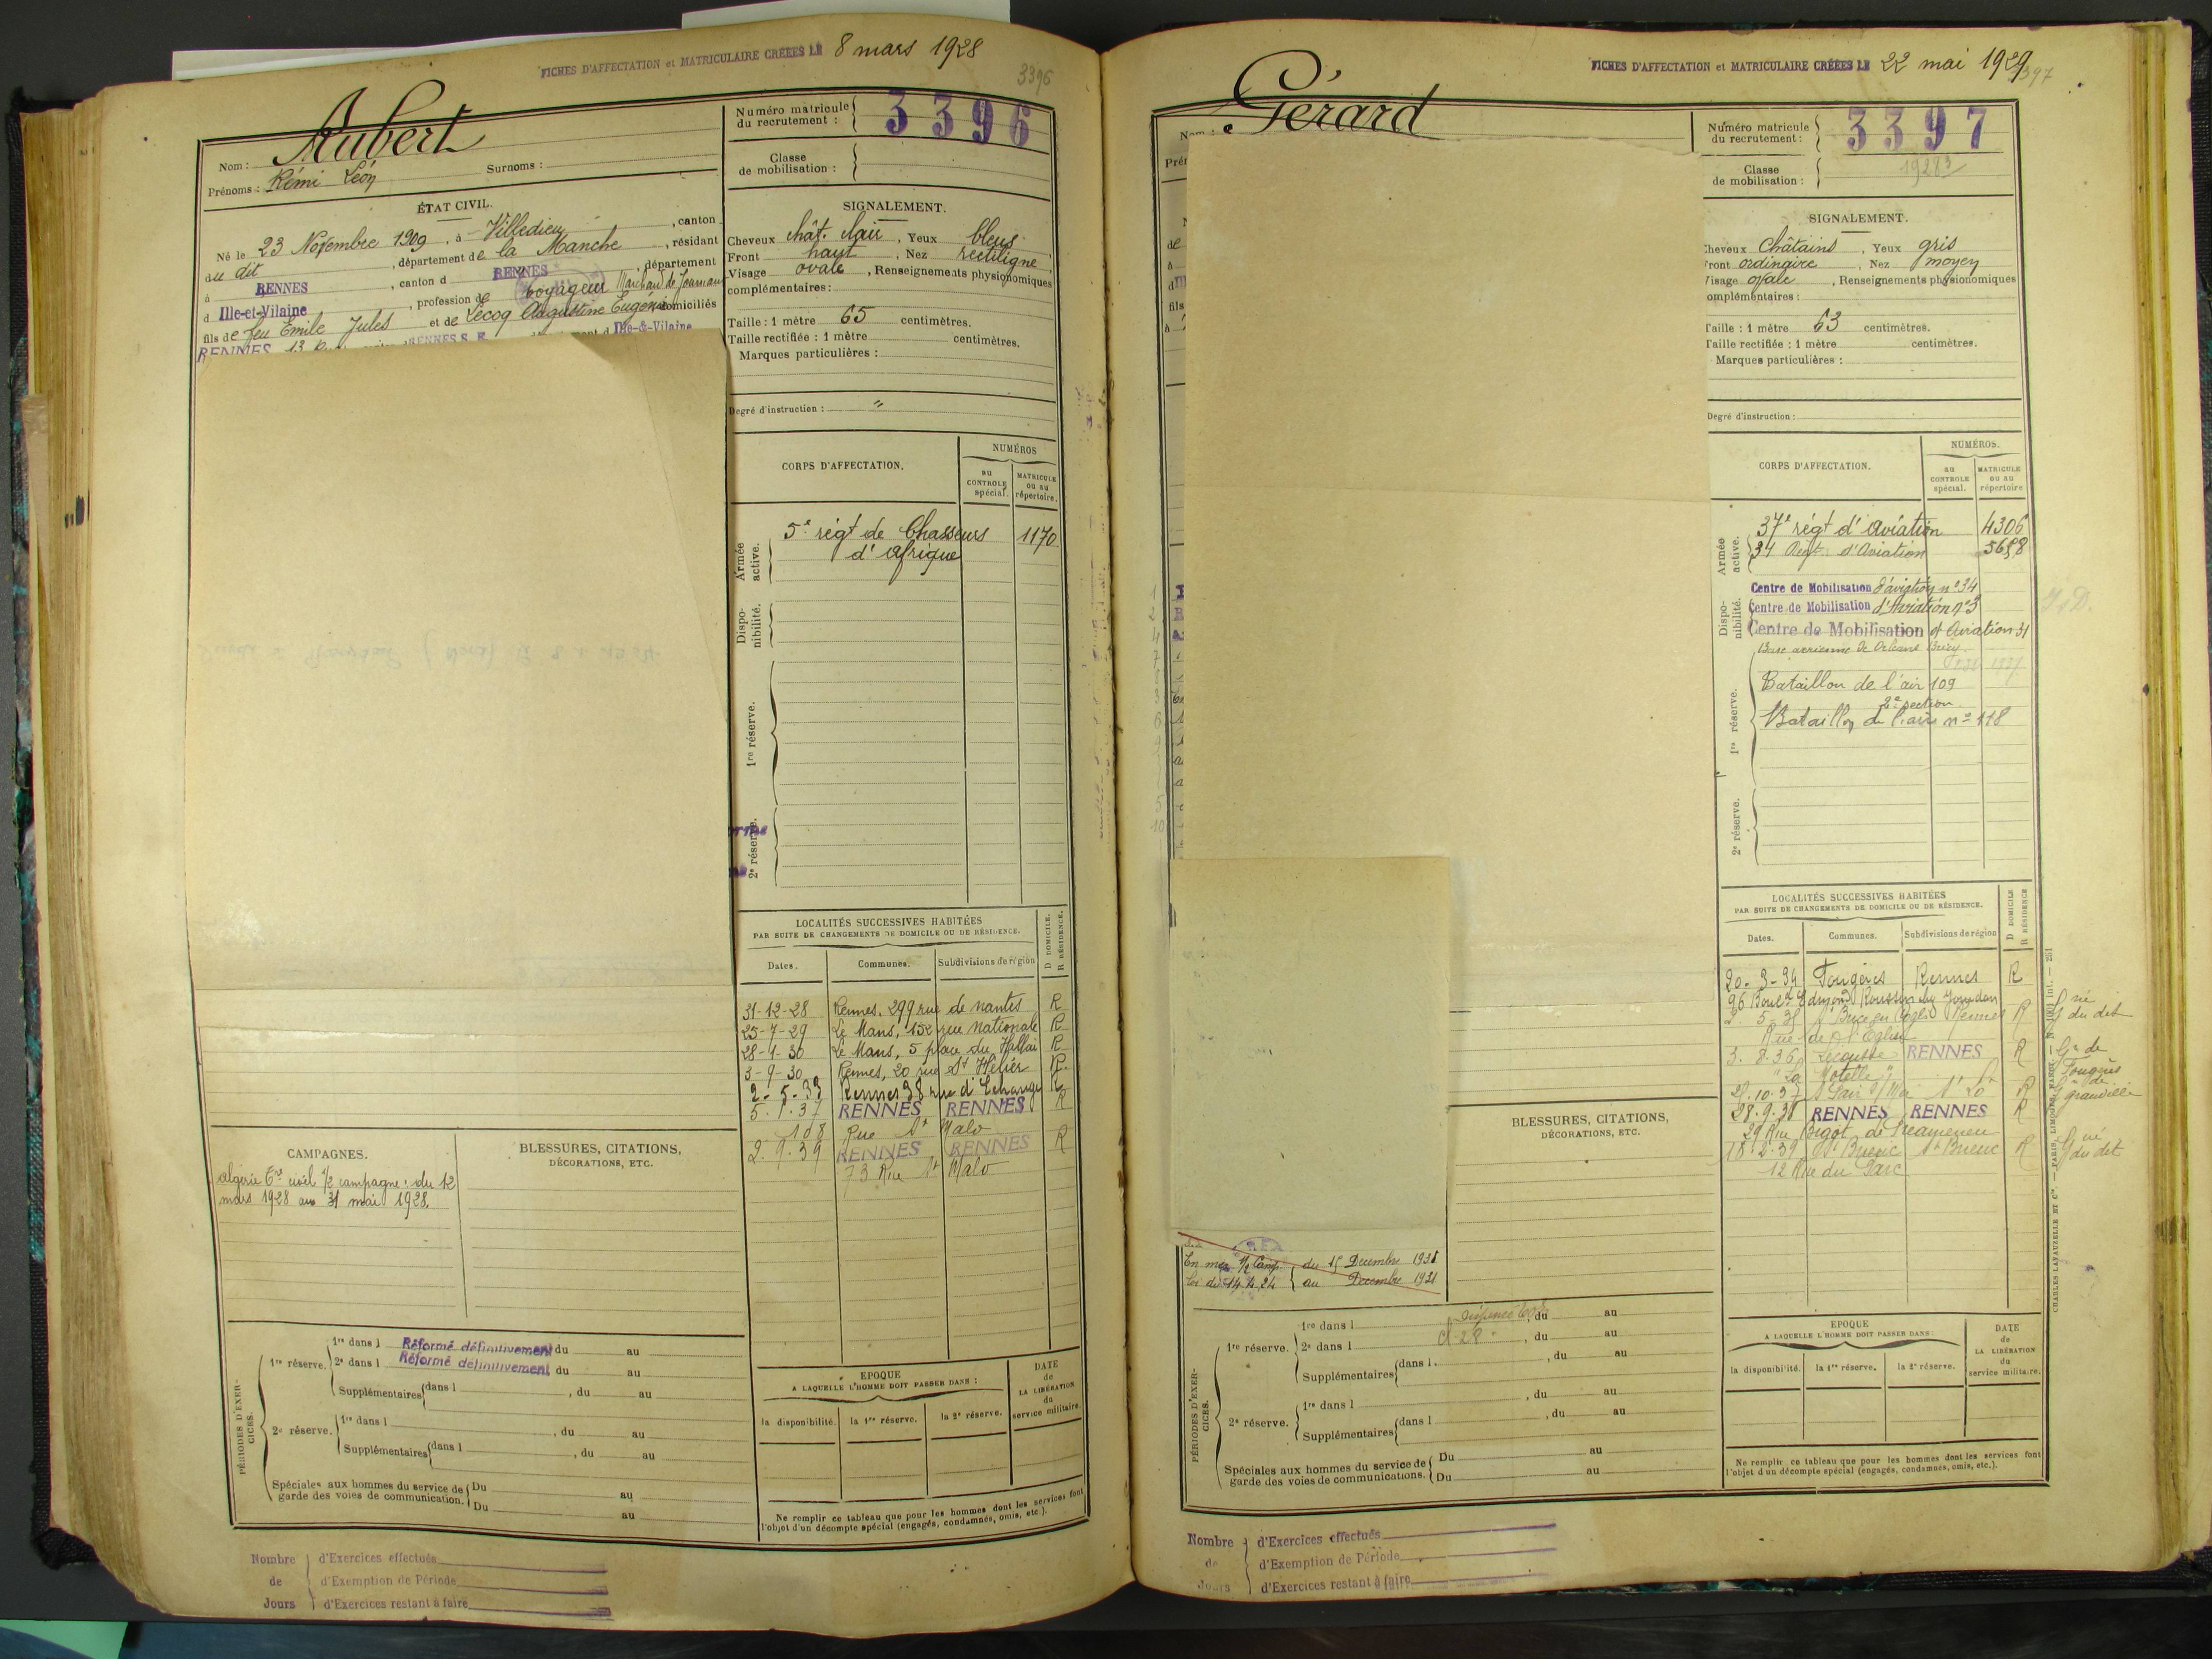 FICHES D'AFFECTATION et MATRICULAIRE CRÉÉES LE 8 mars 1928
3396
Nom : Aubert
Prénoms : Rémi Léon Surnoms :
Numéro matricule du recrutement : 3396
Classe de mobilisation :
ÉTAT CIVIL.
Né le 23 Novembre 1909, à Villedieu, canton
du dit, département de la Manche, résidant
à RENNES, canton d RENNES, département
d Ille-et-Vilaine, profession de voyageur Marchand de Journaux
fils de feu Emile Jules et de Lecoq Augustine Eugénie domiciliés
RENNES 13 RENNES S. E. Ille-&-Vilaine
SIGNALEMENT.
Cheveux chât. clair, Yeux bleus
Front haut, Nez rectiligne
Visage ovale, Renseignements physionomiques
complémentaires :
Taille : 1 mètre 65 centimètres.
Taille rectifiée : 1 mètre centimètres.
Marques particulières :
Degré d'instruction : "
CORPS D'AFFECTATION.
NUMÉROS
au CONTROLE spécial.
MATRICULE ou au répertoire.
Armée active.
5e régt de Chasseurs 1170
d'afrique
Disponibilité.
1re réserve.
2e réserve.
LOCALITÉS SUCCESSIVES HABITÉES
PAR SUITE DE CHANGEMENTS DE DOMICILE OU DE RÉSIDENCE.
Dates. Communes. Subdivisions de région D DOMICILE. R RÉSIDENCE.
31-12-28 Rennes, 299 rue de nantes R
25-7-29 Le Mans, 152 rue nationale R
28-1-30 Le Mans, 5 place du R
3-9-30 Rennes, 20 rue St Hélier R
2-5-33 Rennes 38 rue d'Echange R
5.1.37 RENNES RENNES R
108 Rue St Malo
2.9.39 RENNES RENNES R
73 Rue St Malo
CAMPAGNES.
algérie civil 1/2 campagne : du 12
mars 1928 au 31 mai 1928.
BLESSURES, CITATIONS,
DÉCORATIONS, ETC.
PÉRIODES D'EXERCICES.
1re réserve. 1re dans l Réformé définitivement du au
2e dans l Réformé définitivement du au
Supplémentaires dans l , du au
2e réserve. 1re dans l , du au
Supplémentaires dans l , du au
Spéciales aux hommes du service de garde des voies de communication. Du au
Du au
EPOQUE
A LAQUELLE L'HOMME DOIT PASSER DANS :
la disponibilité. la 1re réserve. la 2e réserve.
DATE de LA LIBÉRATION du service militaire.
Ne remplir ce tableau que pour les hommes dont les services font
l'objet d'un décompte spécial (engagés, condamnés, omis, etc.).
Nombre de Jours
d'Exercices effectués
d'Exemption de Période
d'Exercices restant à faire
FICHES D'AFFECTATION et MATRICULAIRE CRÉÉES LE 22 mai 1929
3397
Nom : Gérard
Numéro matricule du recrutement : 3397
Classe de mobilisation :
SIGNALEMENT.
Cheveux Châtains, Yeux gris
Front ordinaire, Nez moyen
Visage ovale, Renseignements physionomiques
complémentaires :
Taille : 1 mètre 63 centimètres.
Taille rectifiée : 1 mètre centimètres.
Marques particulières :
Degré d'instruction :
CORPS D'AFFECTATION.
NUMÉROS.
au CONTROLE spécial.
MATRICULE ou au répertoire
Armée active.
37e régt d'aviation 4306
34 Regt d'Aviation
Disponibilité.
Centre de Mobilisation d'aviation n° 34
Centre de Mobilisation d'Aviation n° 3
Centre de Mobilisation d'Aviation 31
Base aérienne de Orléans Bricy
1re réserve.
Bataillon de l'air 109
2e section
Bataillon de l'air n° 118
2e réserve.
LOCALITÉS SUCCESSIVES HABITÉES
PAR SUITE DE CHANGEMENTS DE DOMICILE OU DE RÉSIDENCE.
Dates. Communes. Subdivisions de région D DOMICILE R RÉSIDENCE
20-3-34 Fougères Rennes R
96 Boul. Edmond Roussin
St Brice en Coglès Rennes R
Rue de l'Eglise
3.8.36 Lecousse RENNES R
"La Motelle"
St Lo R
28.9.38 RENNES RENNES R
29 Rue Bigot de Préameneu
St Brieuc St Brieuc R
12 Rue du Parc
du dit
Gie de Fougères
Gie de Granville
du dit
BLESSURES, CITATIONS,
DÉCORATIONS, ETC.
En mer 1/2 Camp. du 15 Décembre 1931
Loi du 14.4.24 au Decembre 1931
PÉRIODES D'EXERCICES.
1re réserve. 1re dans l , du au
2e dans l Cl 28 , du au
Supplémentaires dans l , du au
, du au
2e réserve. 1re dans l , du au
Supplémentaires dans l
Spéciales aux hommes du service de garde des voies de communications. Du au
Du au
EPOQUE
A LAQUELLE L'HOMME DOIT PASSER DANS :
la disponibilité. la 1re réserve. la 2e réserve.
DATE de LA LIBÉRATION du service militaire.
Ne remplir ce tableau que pour les hommes dont les services font
l'objet d'un décompte spécial (engagés, condamnés, omis, etc.).
Nombre de Jours
d'Exercices effectués
d'Exemption de Période
d'Exercices restant à faire